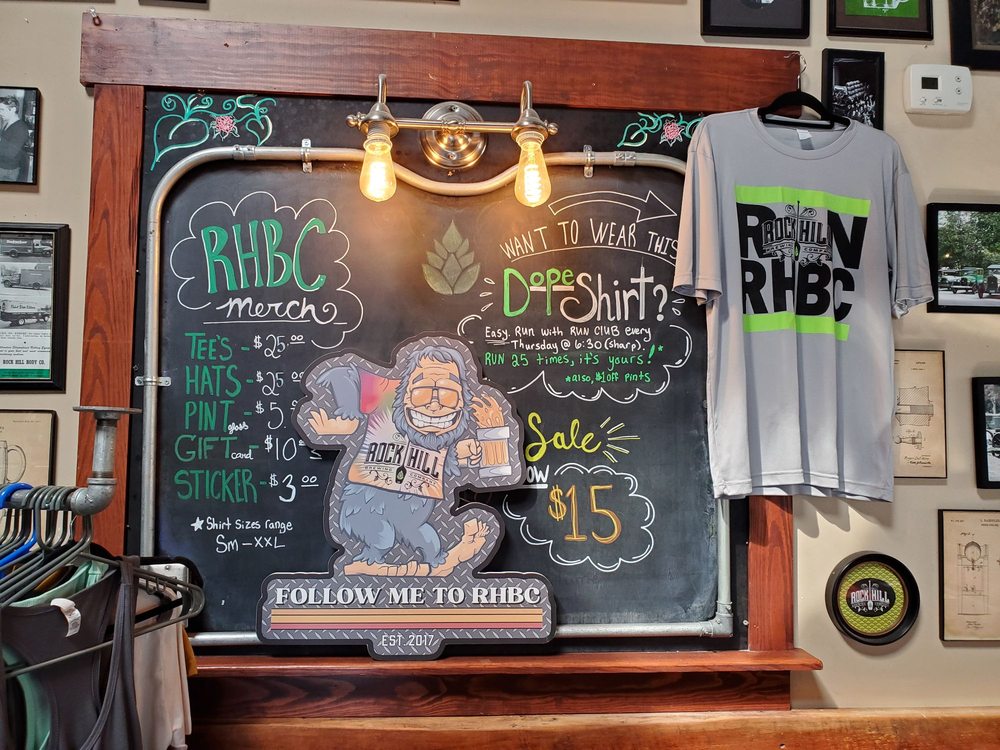 RHBC
merch
TEE'S - $25 00
HATS - $25 00
PINT glass - $5.
GIFT card - $10 00
STICKER - $3 00
★ Shirt Sizes range
Sm - XXL
WANT TO WEAR THIS
Dope Shirt?
Easy. Run with RUN CLUB every
Thursday @ 6:30 (sharp).
RUN 25 times, it's yours!*
*also, $1 off pints
Sale
OW
$15
ROCK HILL
BREWING COMPANY
FOLLOW ME TO RHBC
EST. 2017
RUN
ROCK HILL
BREWING COMPANY
RHBC
ROCK HILL
ROCK HILL BODY CO.